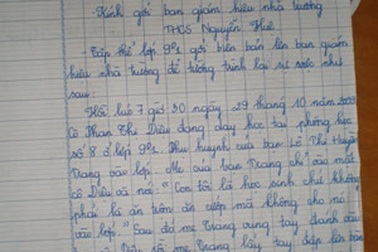 - Kính gởi ban giám hiệu nhà trường
THCS Nguyễn Huệ
- Tập thể lớp 9² gởi biên bản lên ban giám
hiệu nhà trường để tường trình lại sự việc như
sau:
Hồi lúc 7 giờ 30 ngày 29 tháng 10 năm 2009
Cô Phan Thị Diệu đang dạy học tại phòng học
số 8 ở lớp 9². Phu huynh của bạn Lê Thị Huyền
Trang vào lớp. Mẹ của bạn Trang chỉ vào mặt
cô Diệu và nói: "Con tôi là học sinh chứ không
phải là ăn trộm ăn cướp mà không cho nó
vào lớp." Sau đó mẹ Trang vung tay đánh vào
Diệu rồi mẹ Trang lấy tay đập lên bàn